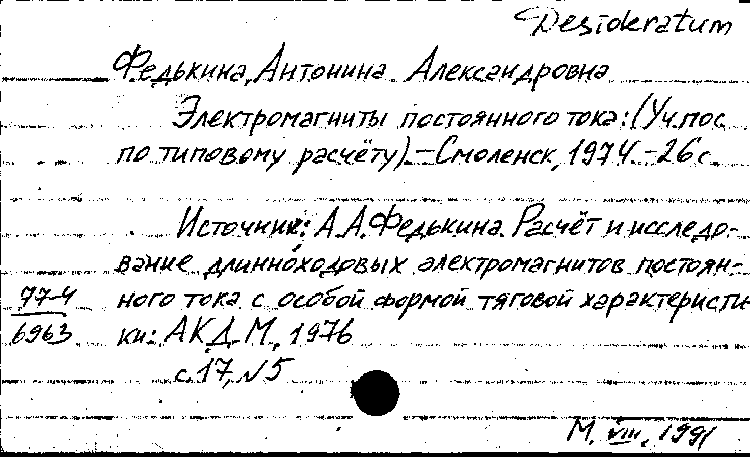 Desideratum
Федькина, Антонина Александровна
Электромагниты постоянного тока: (Уч. пос.
по типовому расчёту). – Смоленск, 1974. – 26 с.
Источник: А.А. Федькина. Расчёт и исследо-
вание длинноходовых электромагнитов постоян-
ного тока с особой формой тяговой характеристи-
ки: АКД. М., 1976
с. 17, N 5
77-4
6963
М. VIII, 1991